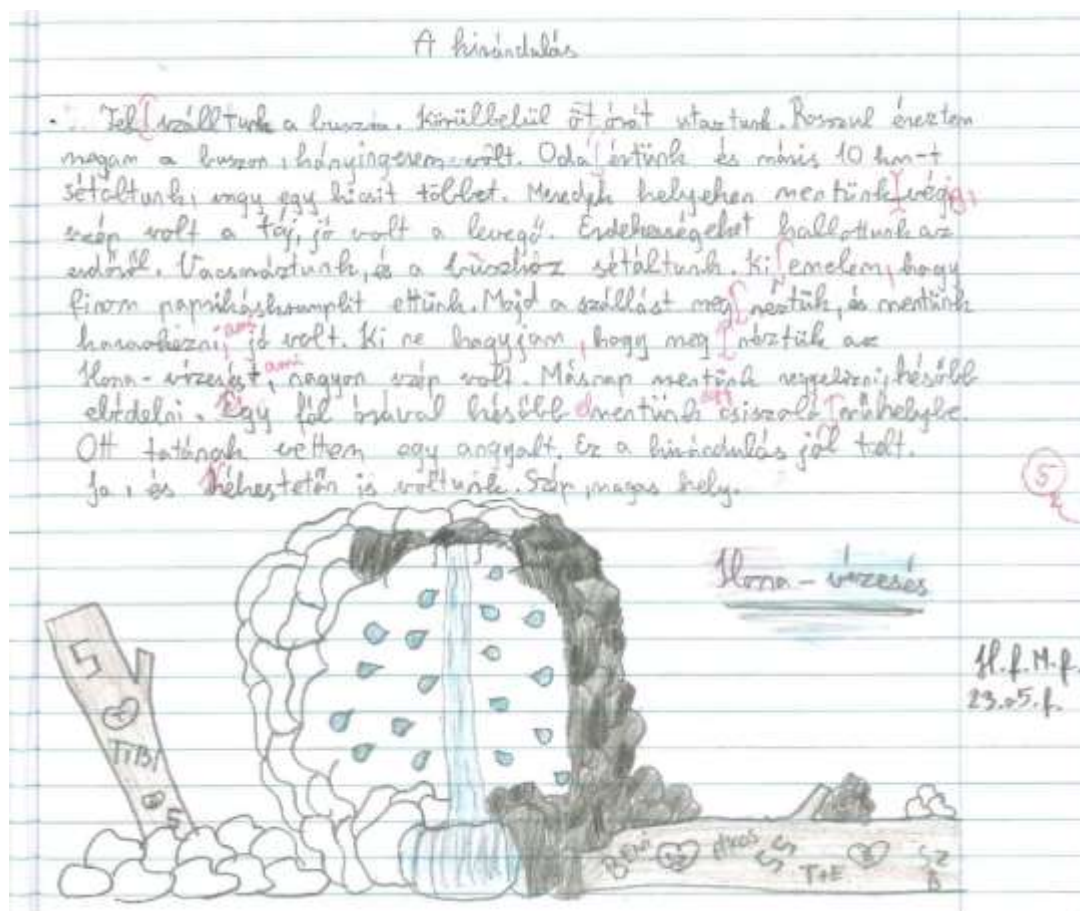 A kirándulás
Fel szálltunk a buszra. Körülbelül öt órát utaztunk. Rosszul éreztem
magam a buszon, hányingerem volt. Oda értünk és máris 10 km-t
sétáltunk, vagy egy kicsit többet. Meredek helyeken mentünk végig,
szép volt a táj, jó volt a levegő. Érdekességeket hallottunk az
erdőről. Vacsoráztunk, és a buszhoz sétáltunk. Ki emelem, hogy
finom paprikáskrumplit ettünk. Majd a szállást meg néztük, és mentünk
karaokézni, ami jó volt. Ki ne hagyjam, hogy meg néztük az
Ilona-vízesést, ami nagyon szép volt. Másnap mentünk reggelizni, később
ebédelni. Egy fél órával később elmentünk egy csiszoló műhelybe.
Ott tatának vettem egy angyalt. Ez a kirándulás jól telt.
Ja, és Kékestetőn is voltunk. Szép, magas hely.
5
Ilona-vízesés
H.f. M.f.
23.05.f.
S
+
TiBi
S
BENi
Ákos
S S
T+E
SZ
B